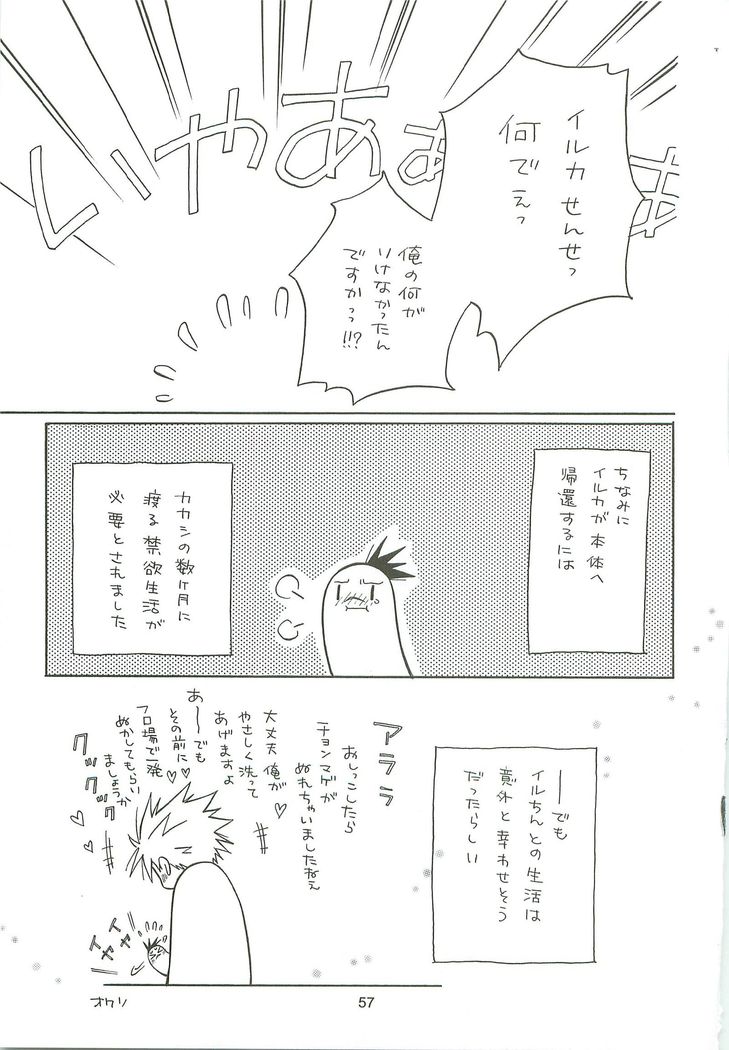 イルカせんせっ
何でぇっ
俺の何が
いけなかったん
ですかっっ!!!?
いやああぁ
ちなみに
イルカが本体へ
帰還するには
カカシの数ヶ月に
渡る禁欲生活が
必要とされました
ーーでも
イルちんとの生活は
意外と幸わせそう
だったらしい
アララ
おしっこしたら
チョンマゲが
ぬれちゃいましたねぇ
大丈夫俺が
やさしく洗って
あげますよ♡
あーーでも
その前に
フロ場で一発
ぬかしてもらい
ましょうか♡♡
クックックッ
イヤイヤ
オワリ
57